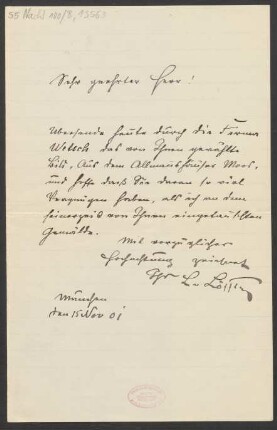 Sehr geehrter Herr!
Übersende heute durch die Firma
Wetsch das von Ihnen gewählte
Bild, Aus dem Allmannshauser Moos,
und hoffe daß Sie daran so viel
Vergnügen haben, als ich an dem
seinerzeit von Ihnen eingetauschten
Gemälde.
Mit vorzüglicher
Hochachtung zeichnet
Ihr
München
den 15 Nov 01